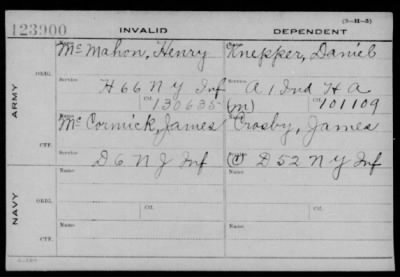 (3-II-3)
123900 INVALID DEPENDENT
ARMY
ORIG.
Name
McMahon, Henry Knepper, Daniel
Service Service
H 66 N Y Inf A 1 Ind H A
Ctf. 130635 (m) Ctf. 101109
CTF.
Name Name
McCormick, James Crosby, James
Service
D 6 N J Inf D 52 N Y Inf
NAVY
ORIG.
Name Ctf. Name Ctf.
CTF.
Name Name